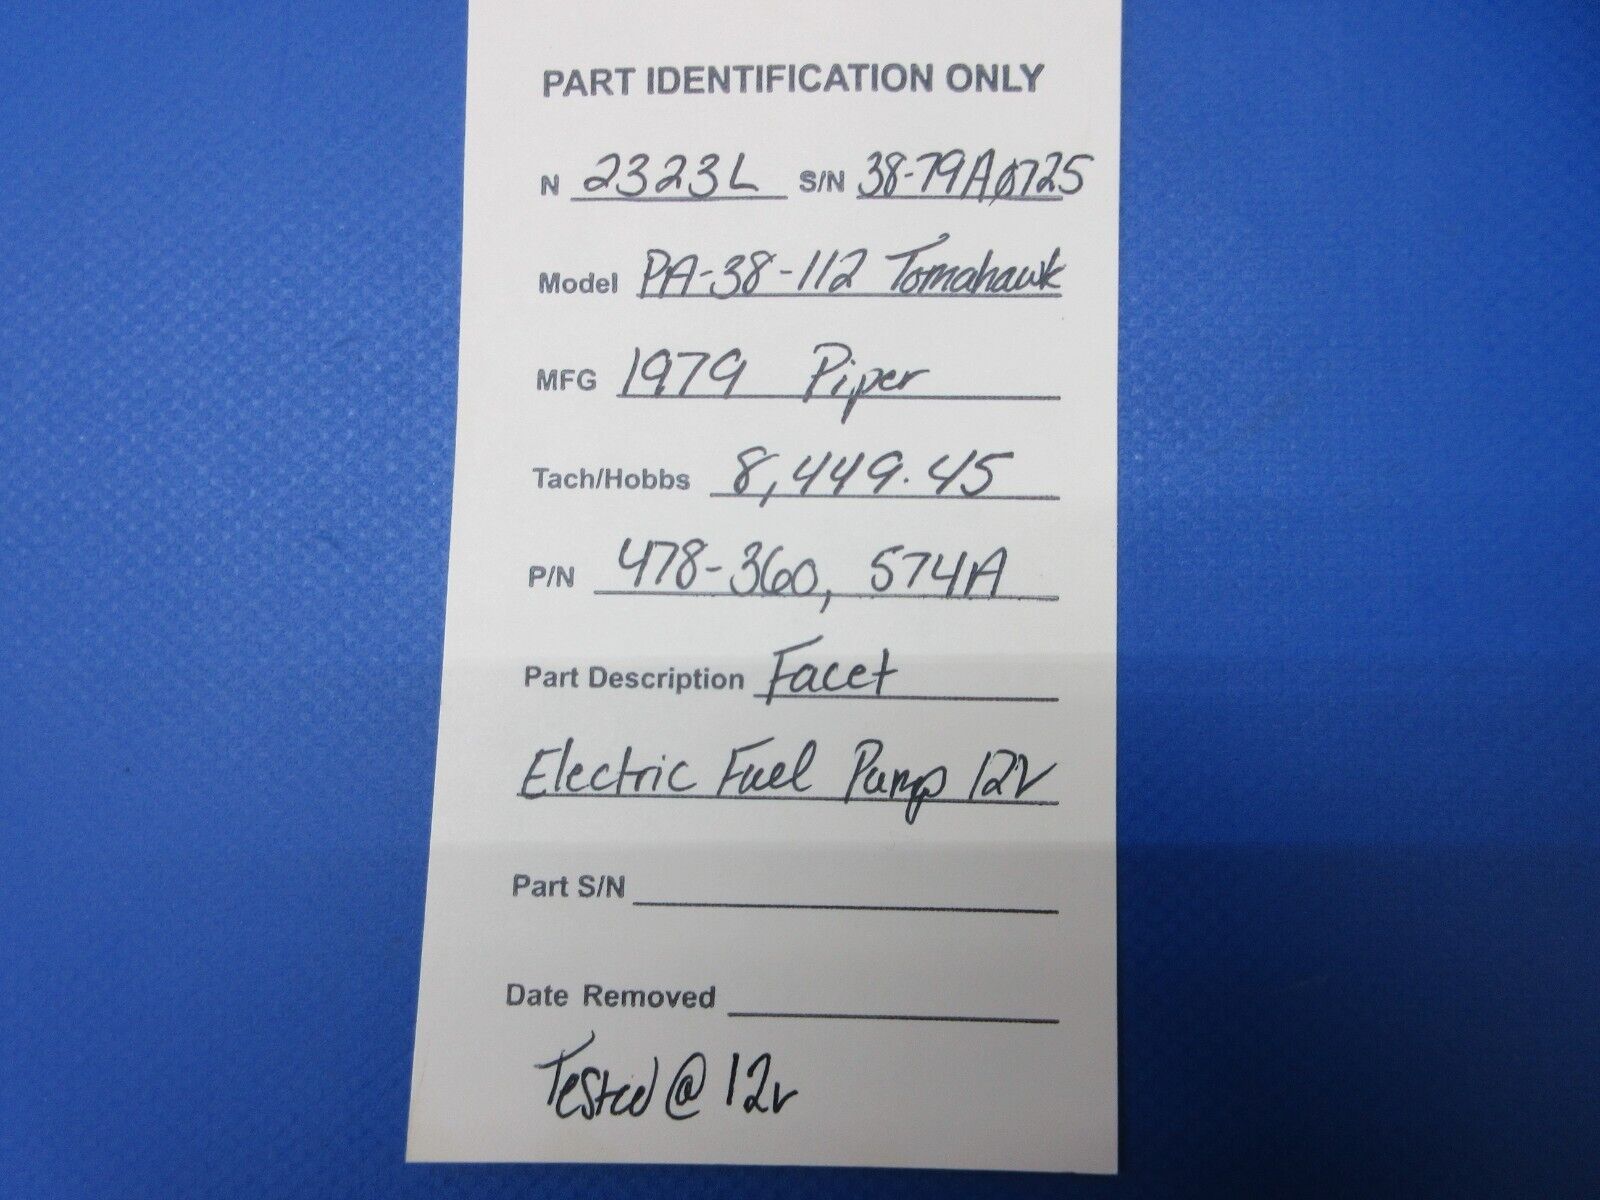 PART IDENTIFICATION ONLY
N 2323L S/N 38-79A0725
Model PA-38-112 Tomahawk
MFG 1979 Piper
Tach/Hobbs 8,449.45
P/N 478-360, 574A
Part Description Facet
Electric Fuel Pump 12V
Part S/N
Date Removed
Tested @ 12v